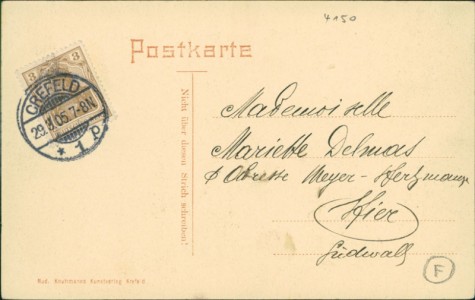 4150
Postkarte
3 3
CREFELD
29.3.05.7-8N
* 1 p
Nicht über diesen Strich schreiben!
Mademoiselle
Mariette Delmas
p Adresse Meyer-Hertzmann
Hier
Südwall
F
Rud. Knuthmanns Kunstverlag Krefeld